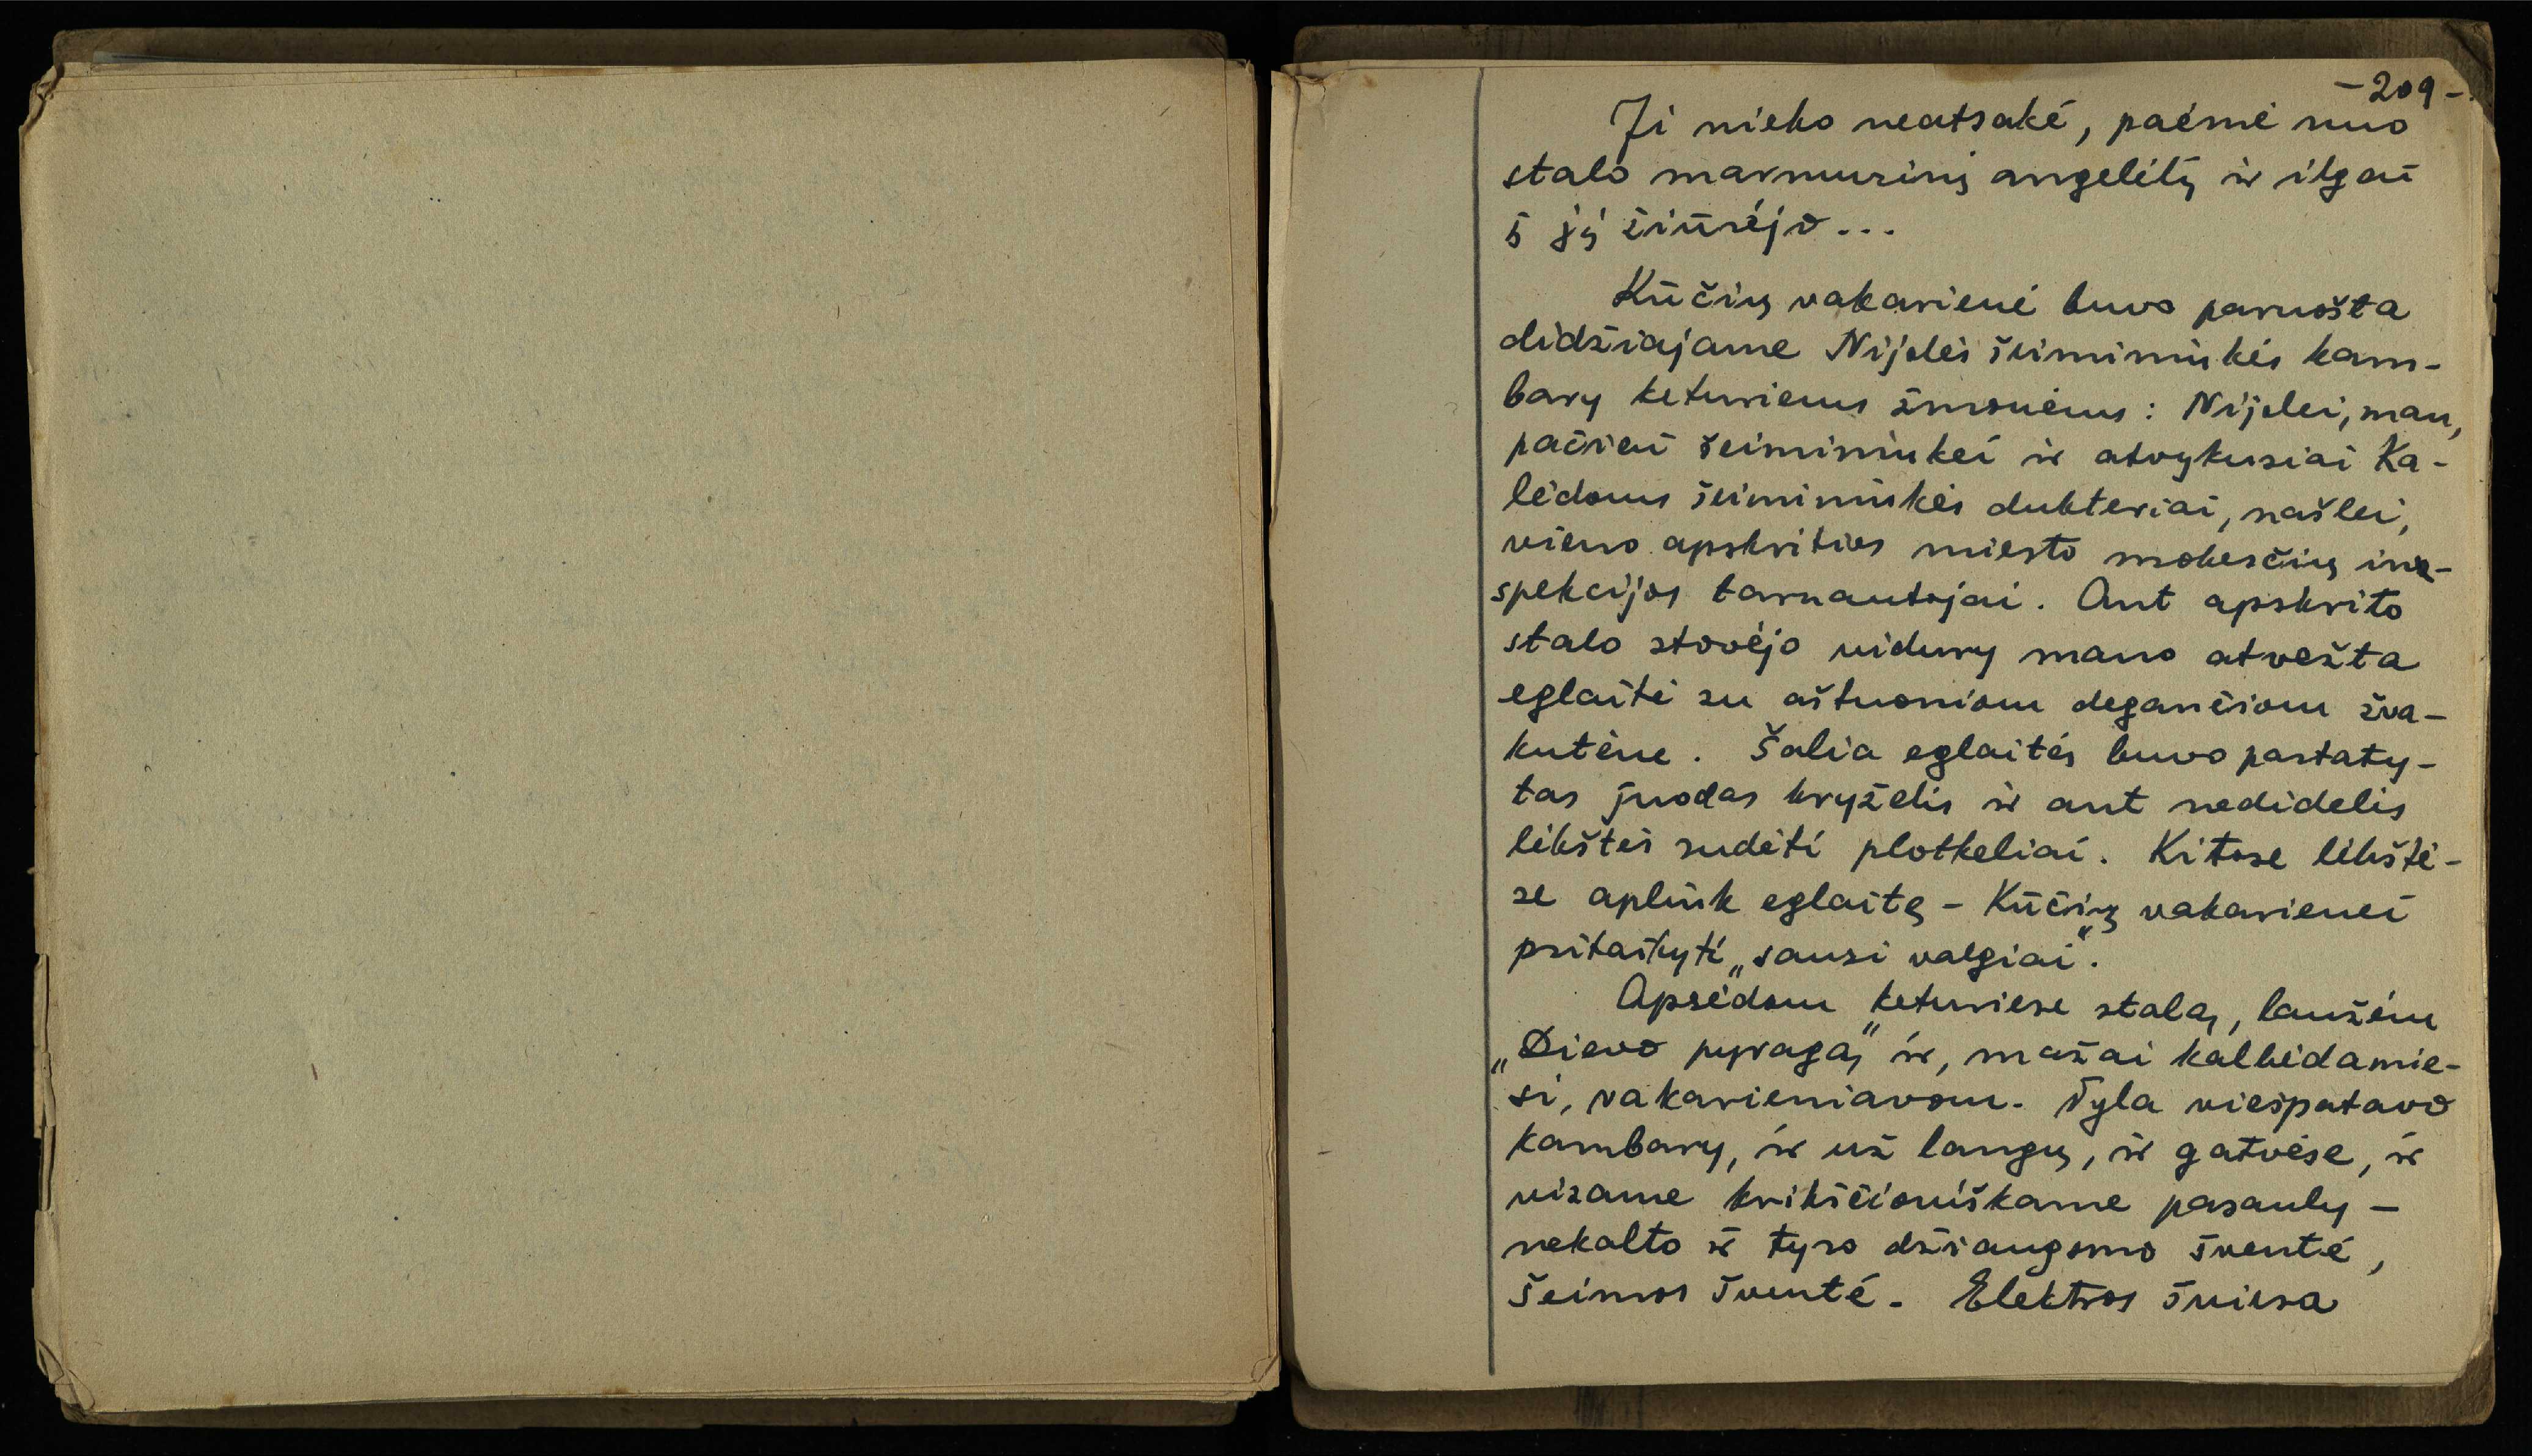 -209-
Ji nieko neatsakė, paėmė nuo
stalo marmurinį angelėlį ir ilgai
į jį žiūrėjo...
Kūčių vakarienė buvo paruošta
didžiajame Nijolės šeimininkės kam-
bary keturiems žmonėms: Nijolei, man,
pačiai šeimininkei ir atvykusiai Ka-
lėdoms šeimininkės dukteriai, našlei,
vieno apskrities miesto mokesčių in-
spekcijos tarnautojai. Ant apskrito
stalo stovėjo vidury mano atvežta
eglaitė su aštuoniom degančiom žva-
kutėm. Šalia eglaitės buvo pastaty-
tas juodas kryželis ir ant nedidelės
lėkštės sudėti plotkeliai. Kitose lėkštė-
se aplink eglaitę - Kūčių vakarienei
pritaikyti „sausi valgiai“.
Apsėdom keturiese stalą, laužėm
„Dievo pyragą“ ir, mažai kalbėdamie-
si, vakarieniavom. Tyla viešpatavo
kambary, ir už langų, ir gatvėse, ir
visame krikščioniškame pasauly –
nekalto ir tyro džiaugsmo šventė,
šeimos šventė. Elektros šviesa